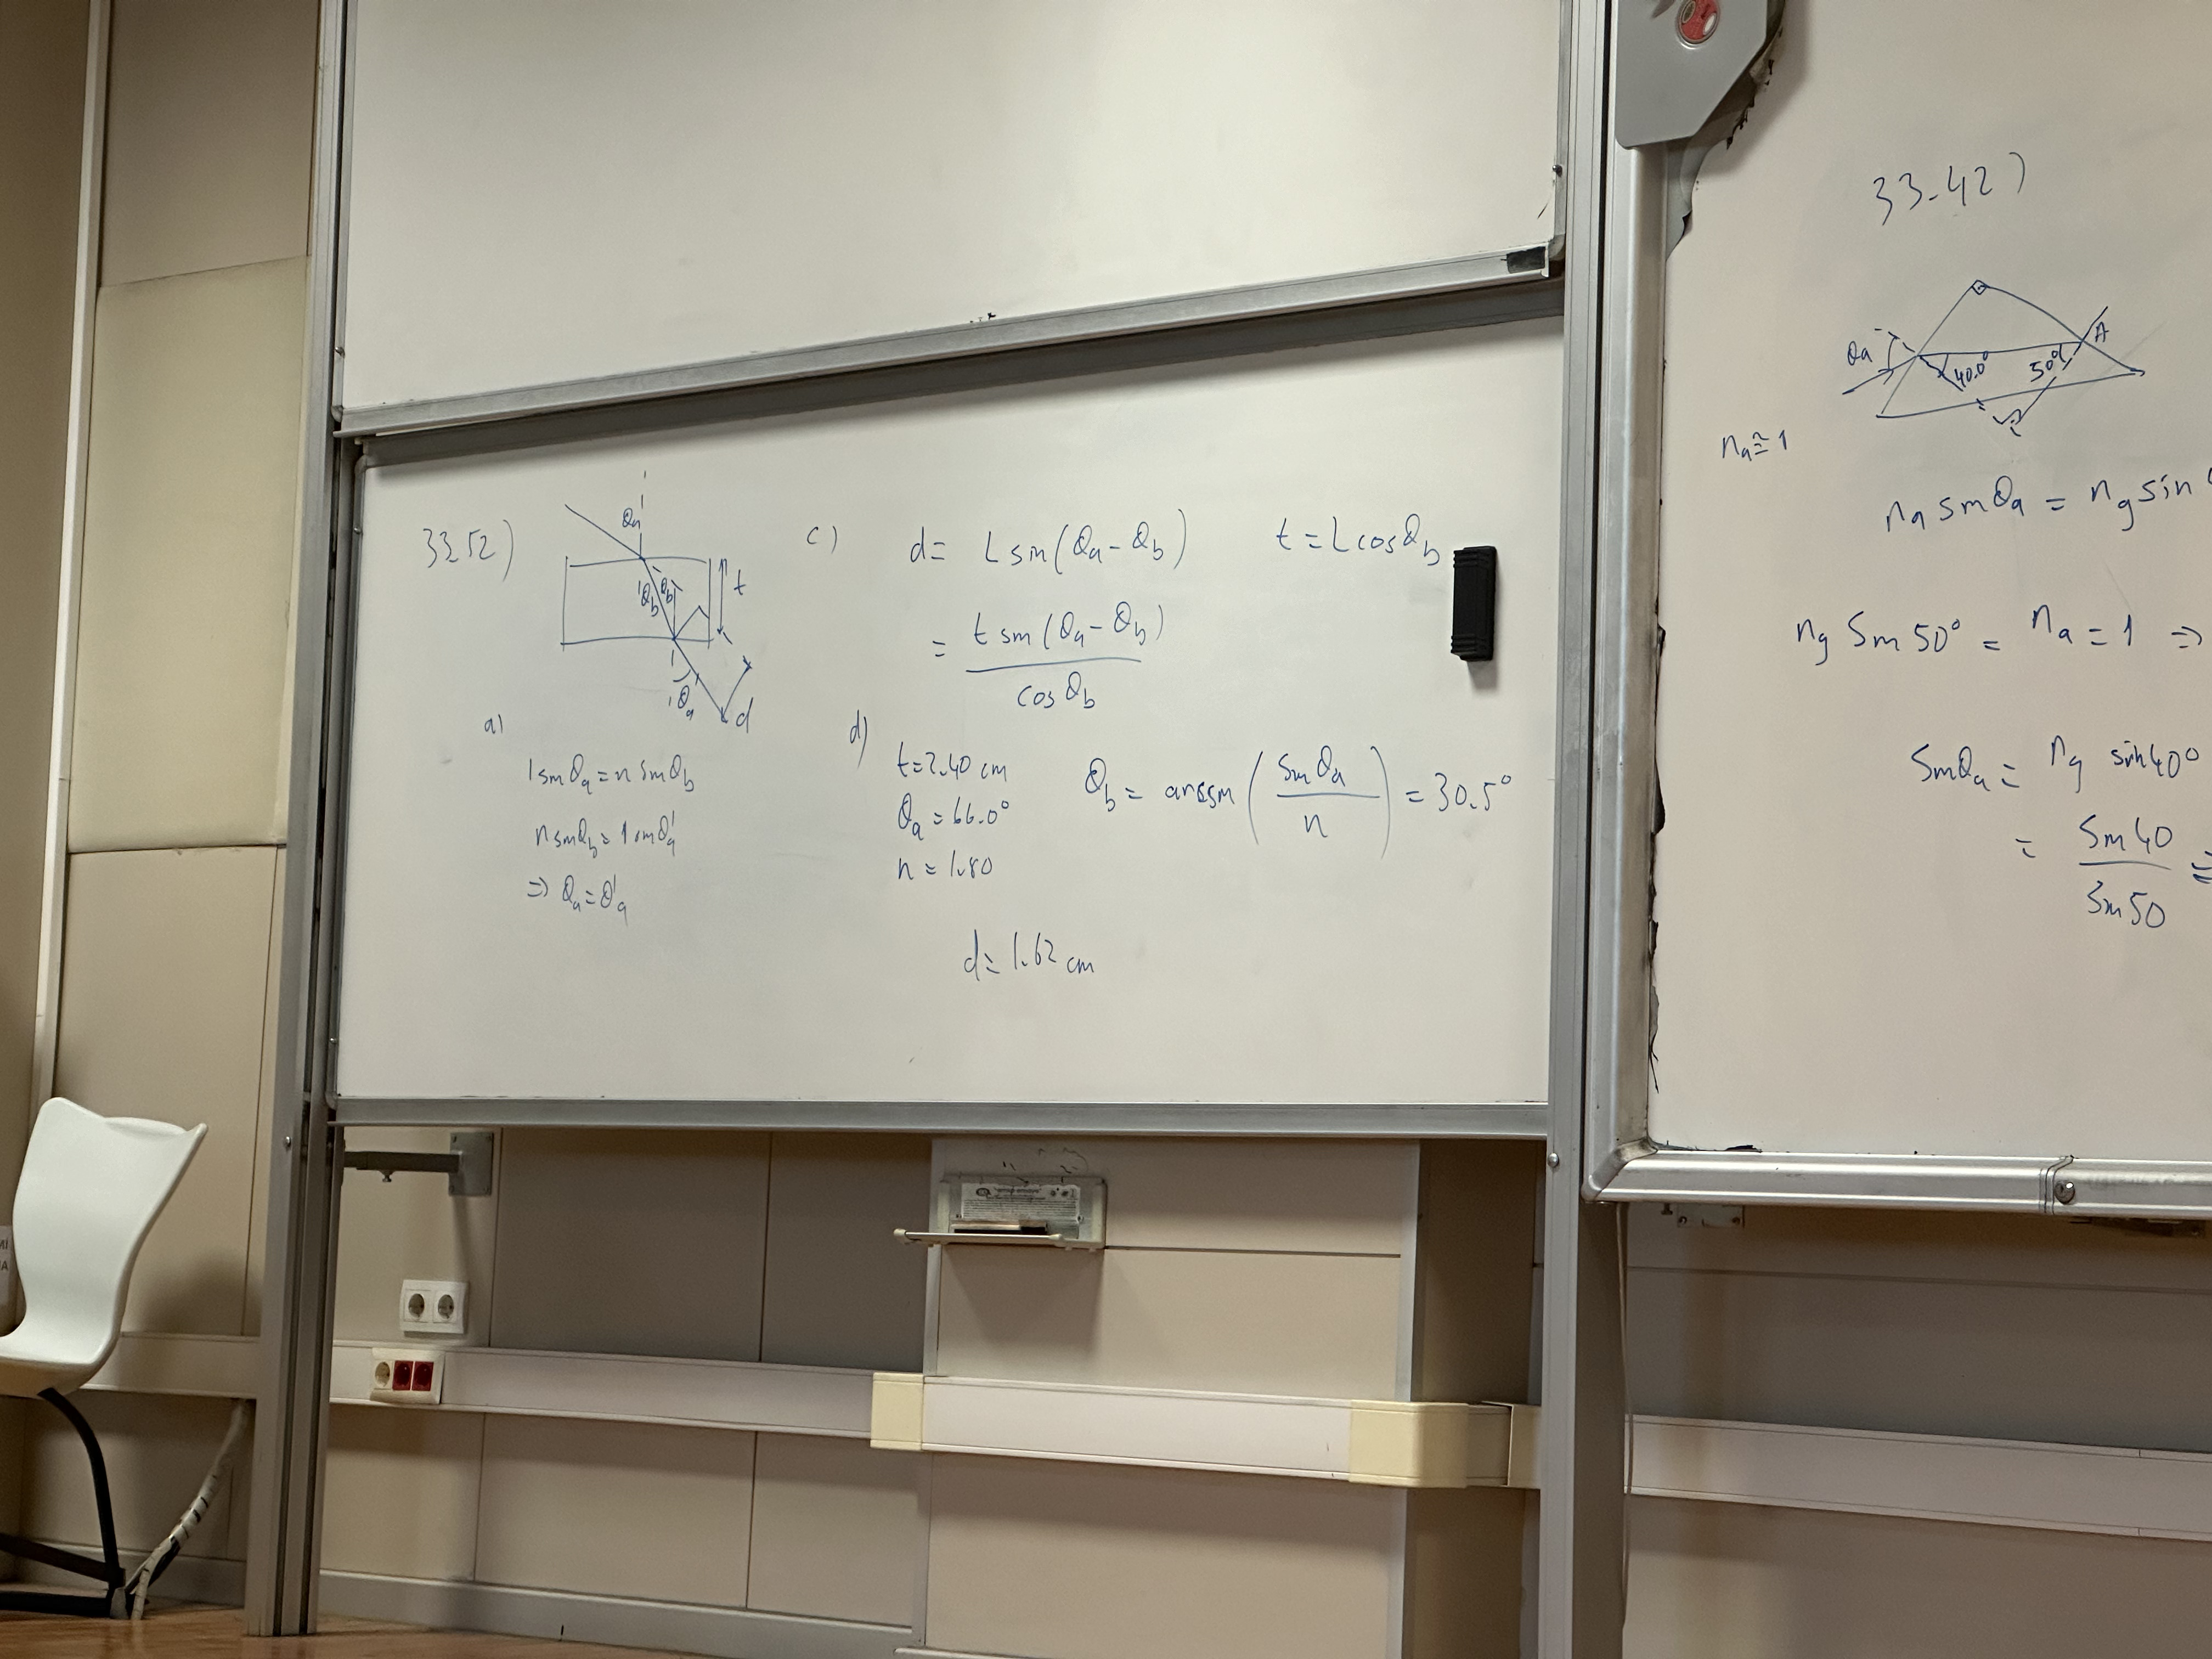 33.52)
θa
θb θb
t
θa'
d
a)
1 sin θa = n sin θb
n sin θb = 1 sin θa'
⇒ θa = θa'
c)
d = L sin(θa - θb) t = L cos θb
= t sin(θa - θb) / cos θb
d)
t = 2.40 cm
θa = 66.0°
n = 1.80
θb = arcsin(sin θa / n) = 30.5°
d = 1.62 cm
33.42)
θa
40.0°
50°
A
na ≅ 1
na sin θa = ng sin
ng sin 50° = na = 1 ⇒
sin θa = ng sin 40°
= sin 40 / sin 50 ≅